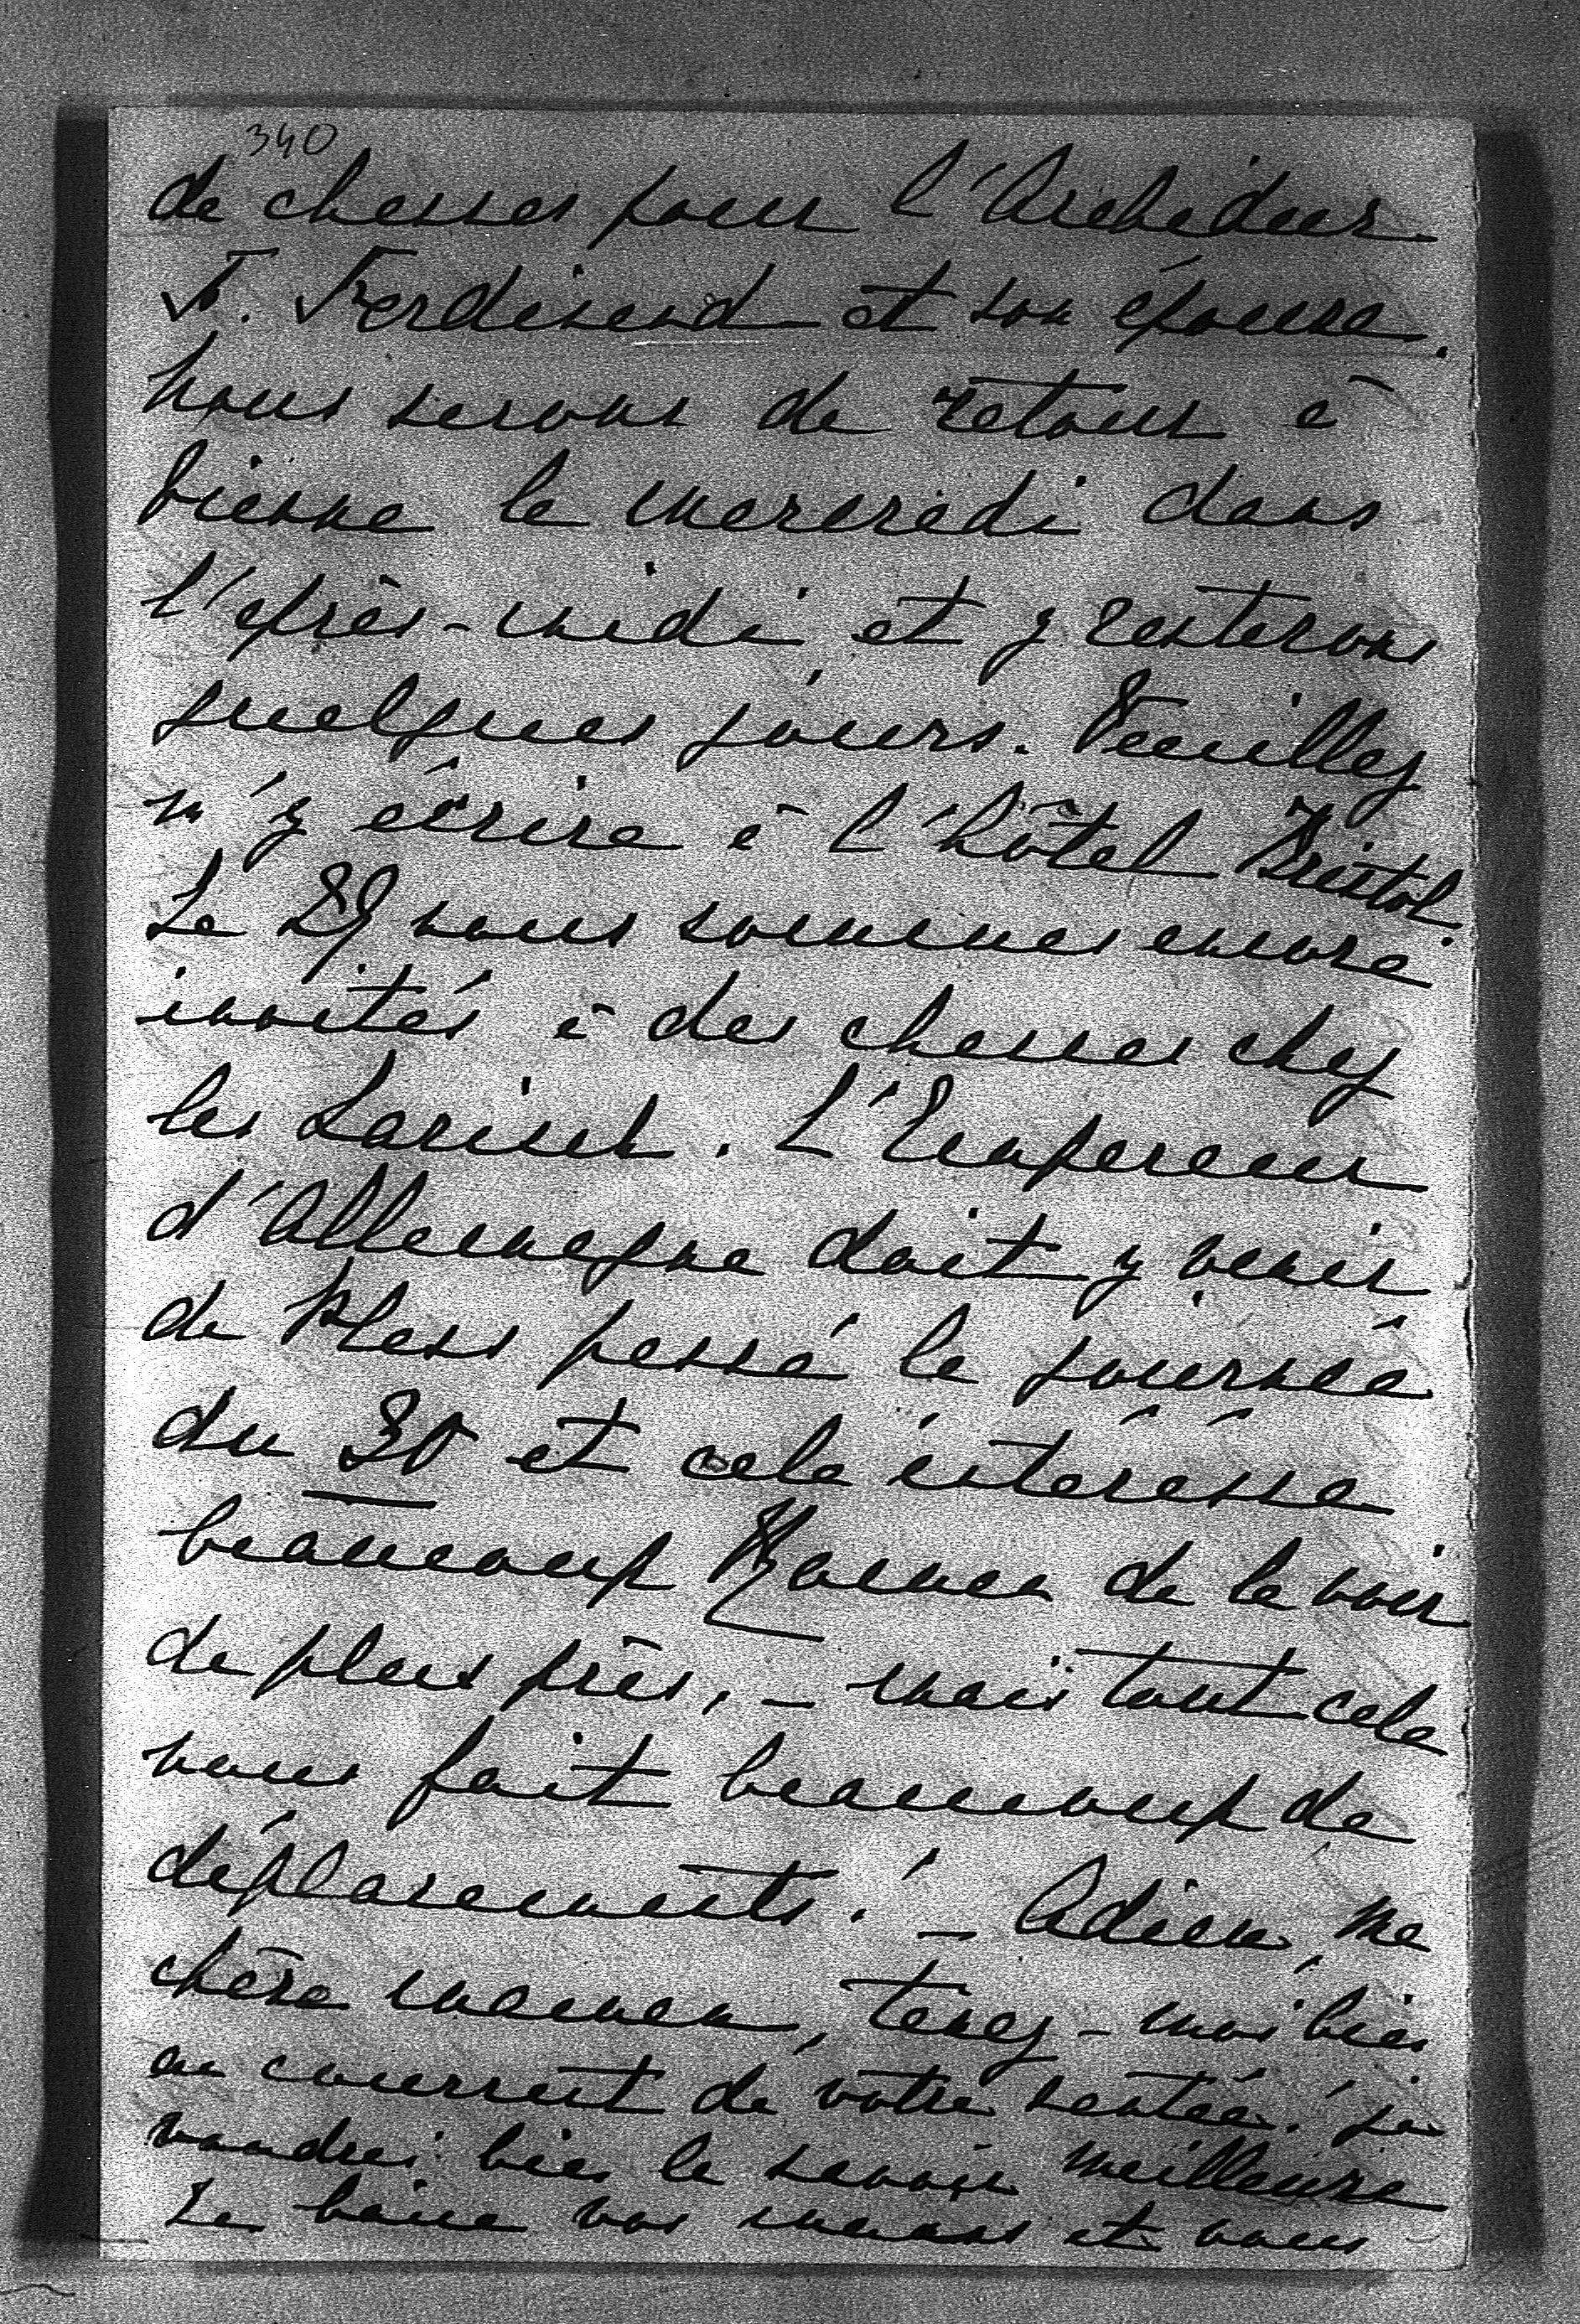 340
de chasses pour l'Archiduc
F. Ferdinand et son épouse.
Nous serons de retour à
Vienne le mercredi dans
l'après-midi et y resterons
quelques jours. Veuillez
m'y écrire à l'hôtel Bristol.
Le 29 nous sommes encore
invités à des chasses chez
les Larisch. L'Empereur
d'Allemagne doit y venir
de Pless passé la journée
du 30 et cela intéresse
beaucoup de le voir
de plus près, - mais tout cela
nous fait beaucoup de
déplacements! - Adieu, ma
chère maman, tenez-moi bien
au courrant de votre santée! je
voudrai bien la savoir meilleure
Je baise vos mains et vous